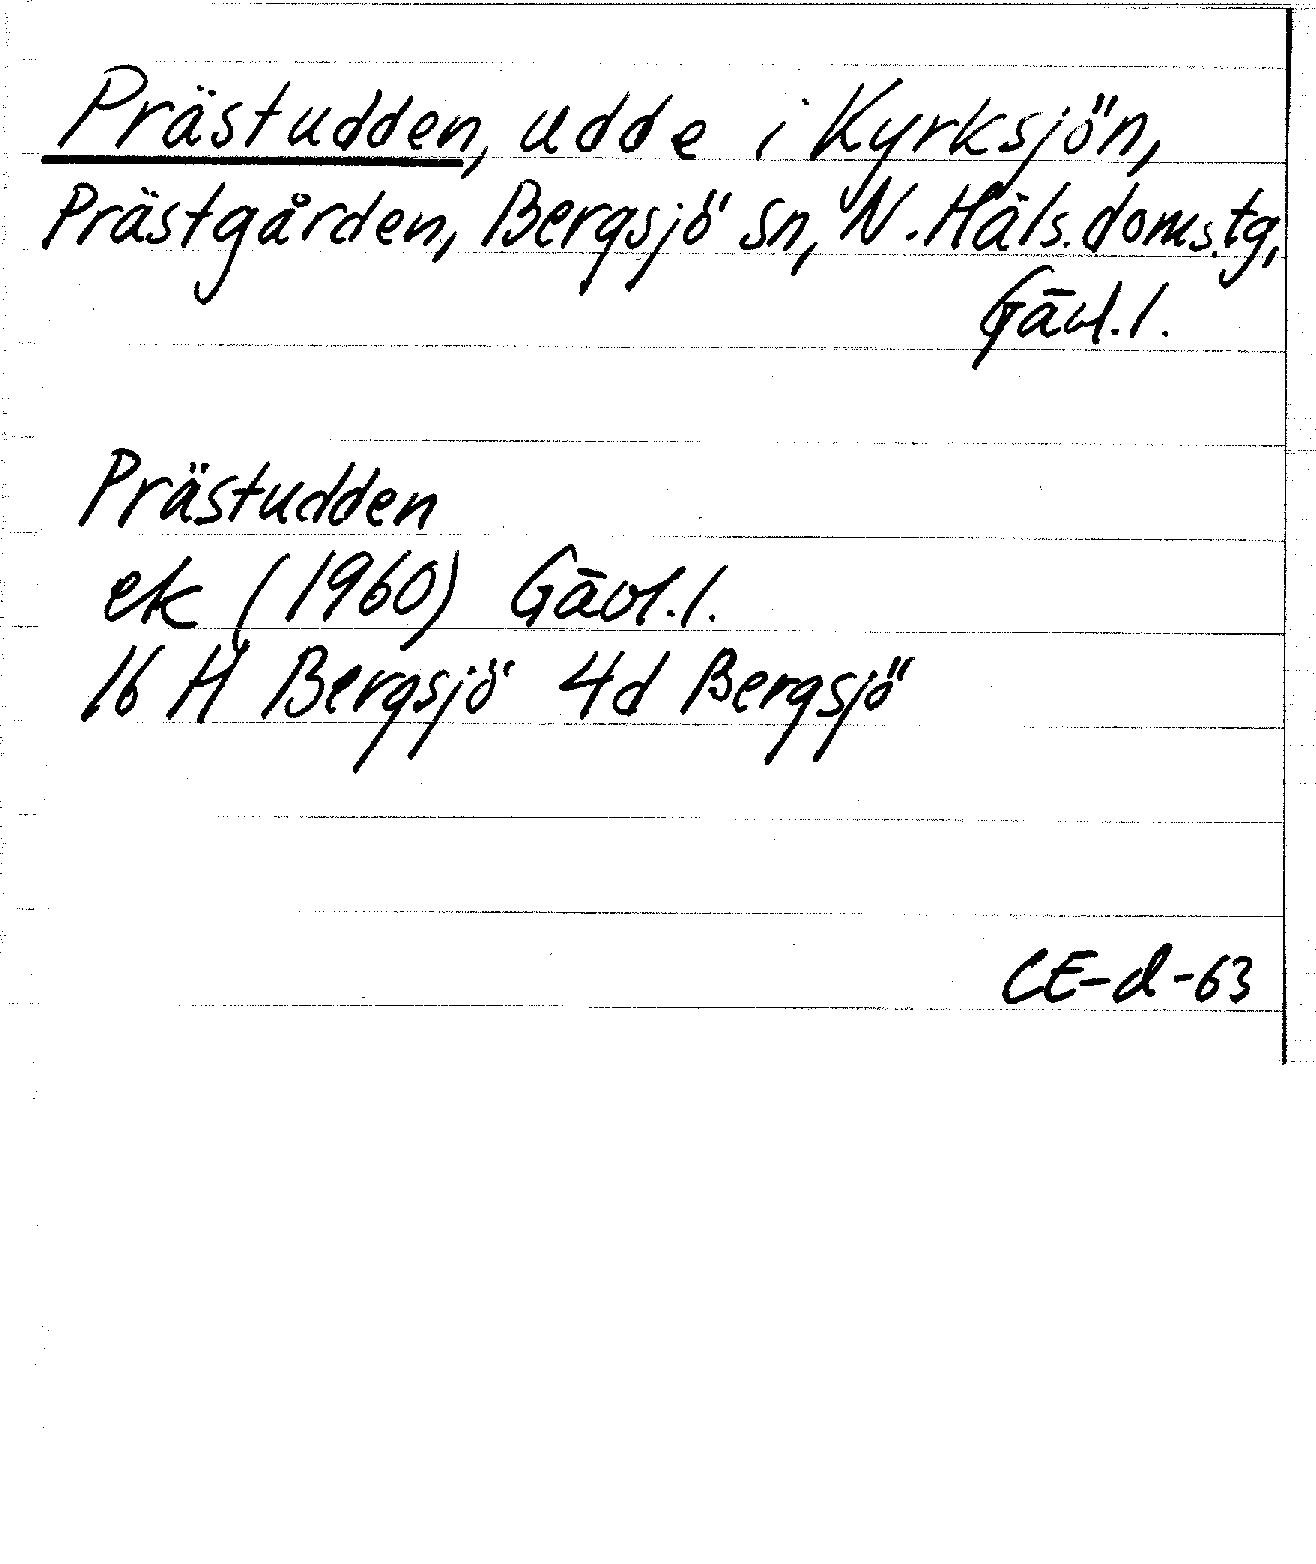 Prästudden, udde i Kyrksjön,
Prästgården, Bergsjö sn, N. Häls. doms.tg,
Gävl.l.
Prästudden
ek (1960) Gävl.l.
16 H Bergsjö 4d Bergsjö
CE-d-63